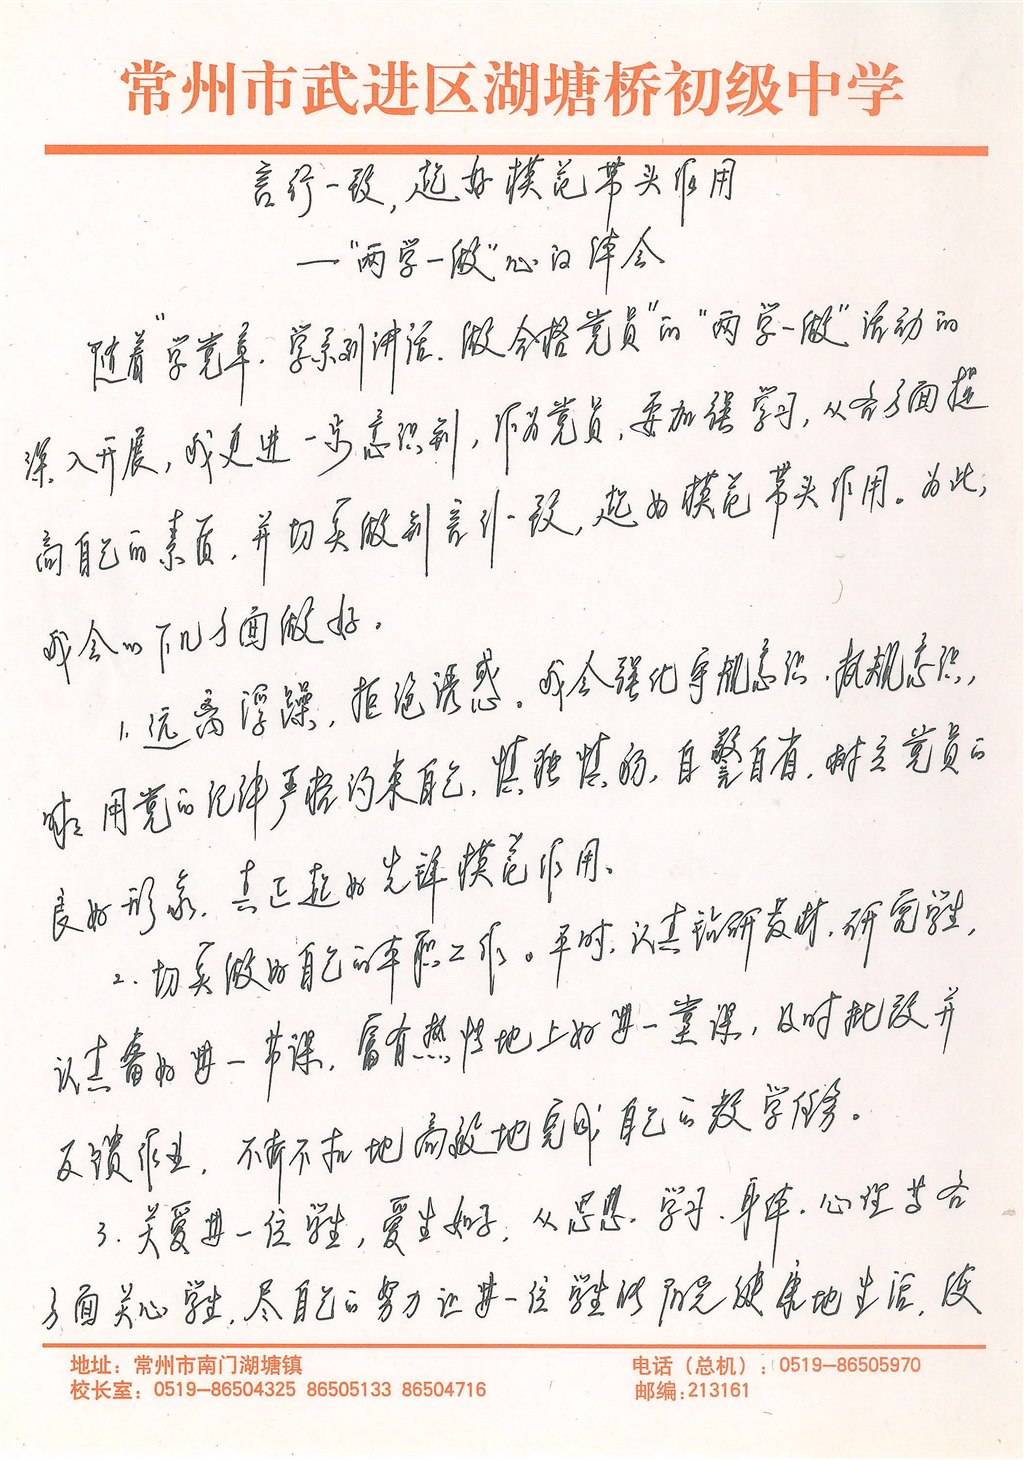 常州市武进区湖塘桥初级中学
言行一致，起好模范带头作用
—“两学一做”心得体会
随着“学党章、学系列讲话、做合格党员”的“两学一做”活动的
深入开展，我更进一步意识到，作为党员，要加强学习，从各方面提
高自己的素质，并切实做到言行一致，起好模范带头作用。为此，
我会从下几方面做好。
1. 远离浮躁，拒绝诱惑。我会强化守规意识、执规意识，
用党的纪律严格约束自己，慎独慎初，自警自省，树立党员的
良好形象，真正起好先锋模范作用。
2. 切实做好自己的本职工作。平时，认真钻研教材，研究学生，
认真备好每一节课，富有热情地上好每一堂课，及时批改并
反馈作业，不折不扣地高效地完成自己的教学任务。
3. 关爱每一位学生，爱生如子，从思想、学习、身体、心理等各
方面关心学生，尽自己的努力让每一位学生阳光健康地生活，使
地址：常州市南门湖塘镇
电话（总机）：0519—86505970
校长室：0519—86504325 86505133 86504716
邮编：213161